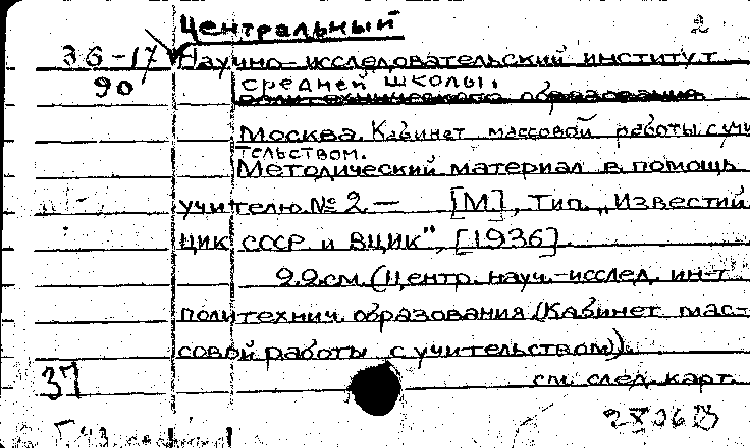 Центральный
2
36-17 Научно-исследовательский институт
90 средней школы.
политехнического образования
Москва. Кабинет массовой работы с учи
тельством.
Методический материал в помощь
учителю. № 2 — [М], Тип. „Известий
ЦИК СССР и ВЦИК", [1936].
22см. (Центр. науч.-исслед. ин-т
политехнич. образования (Кабинет мас-
совой работы с учительством)).
37
см. след. карт.